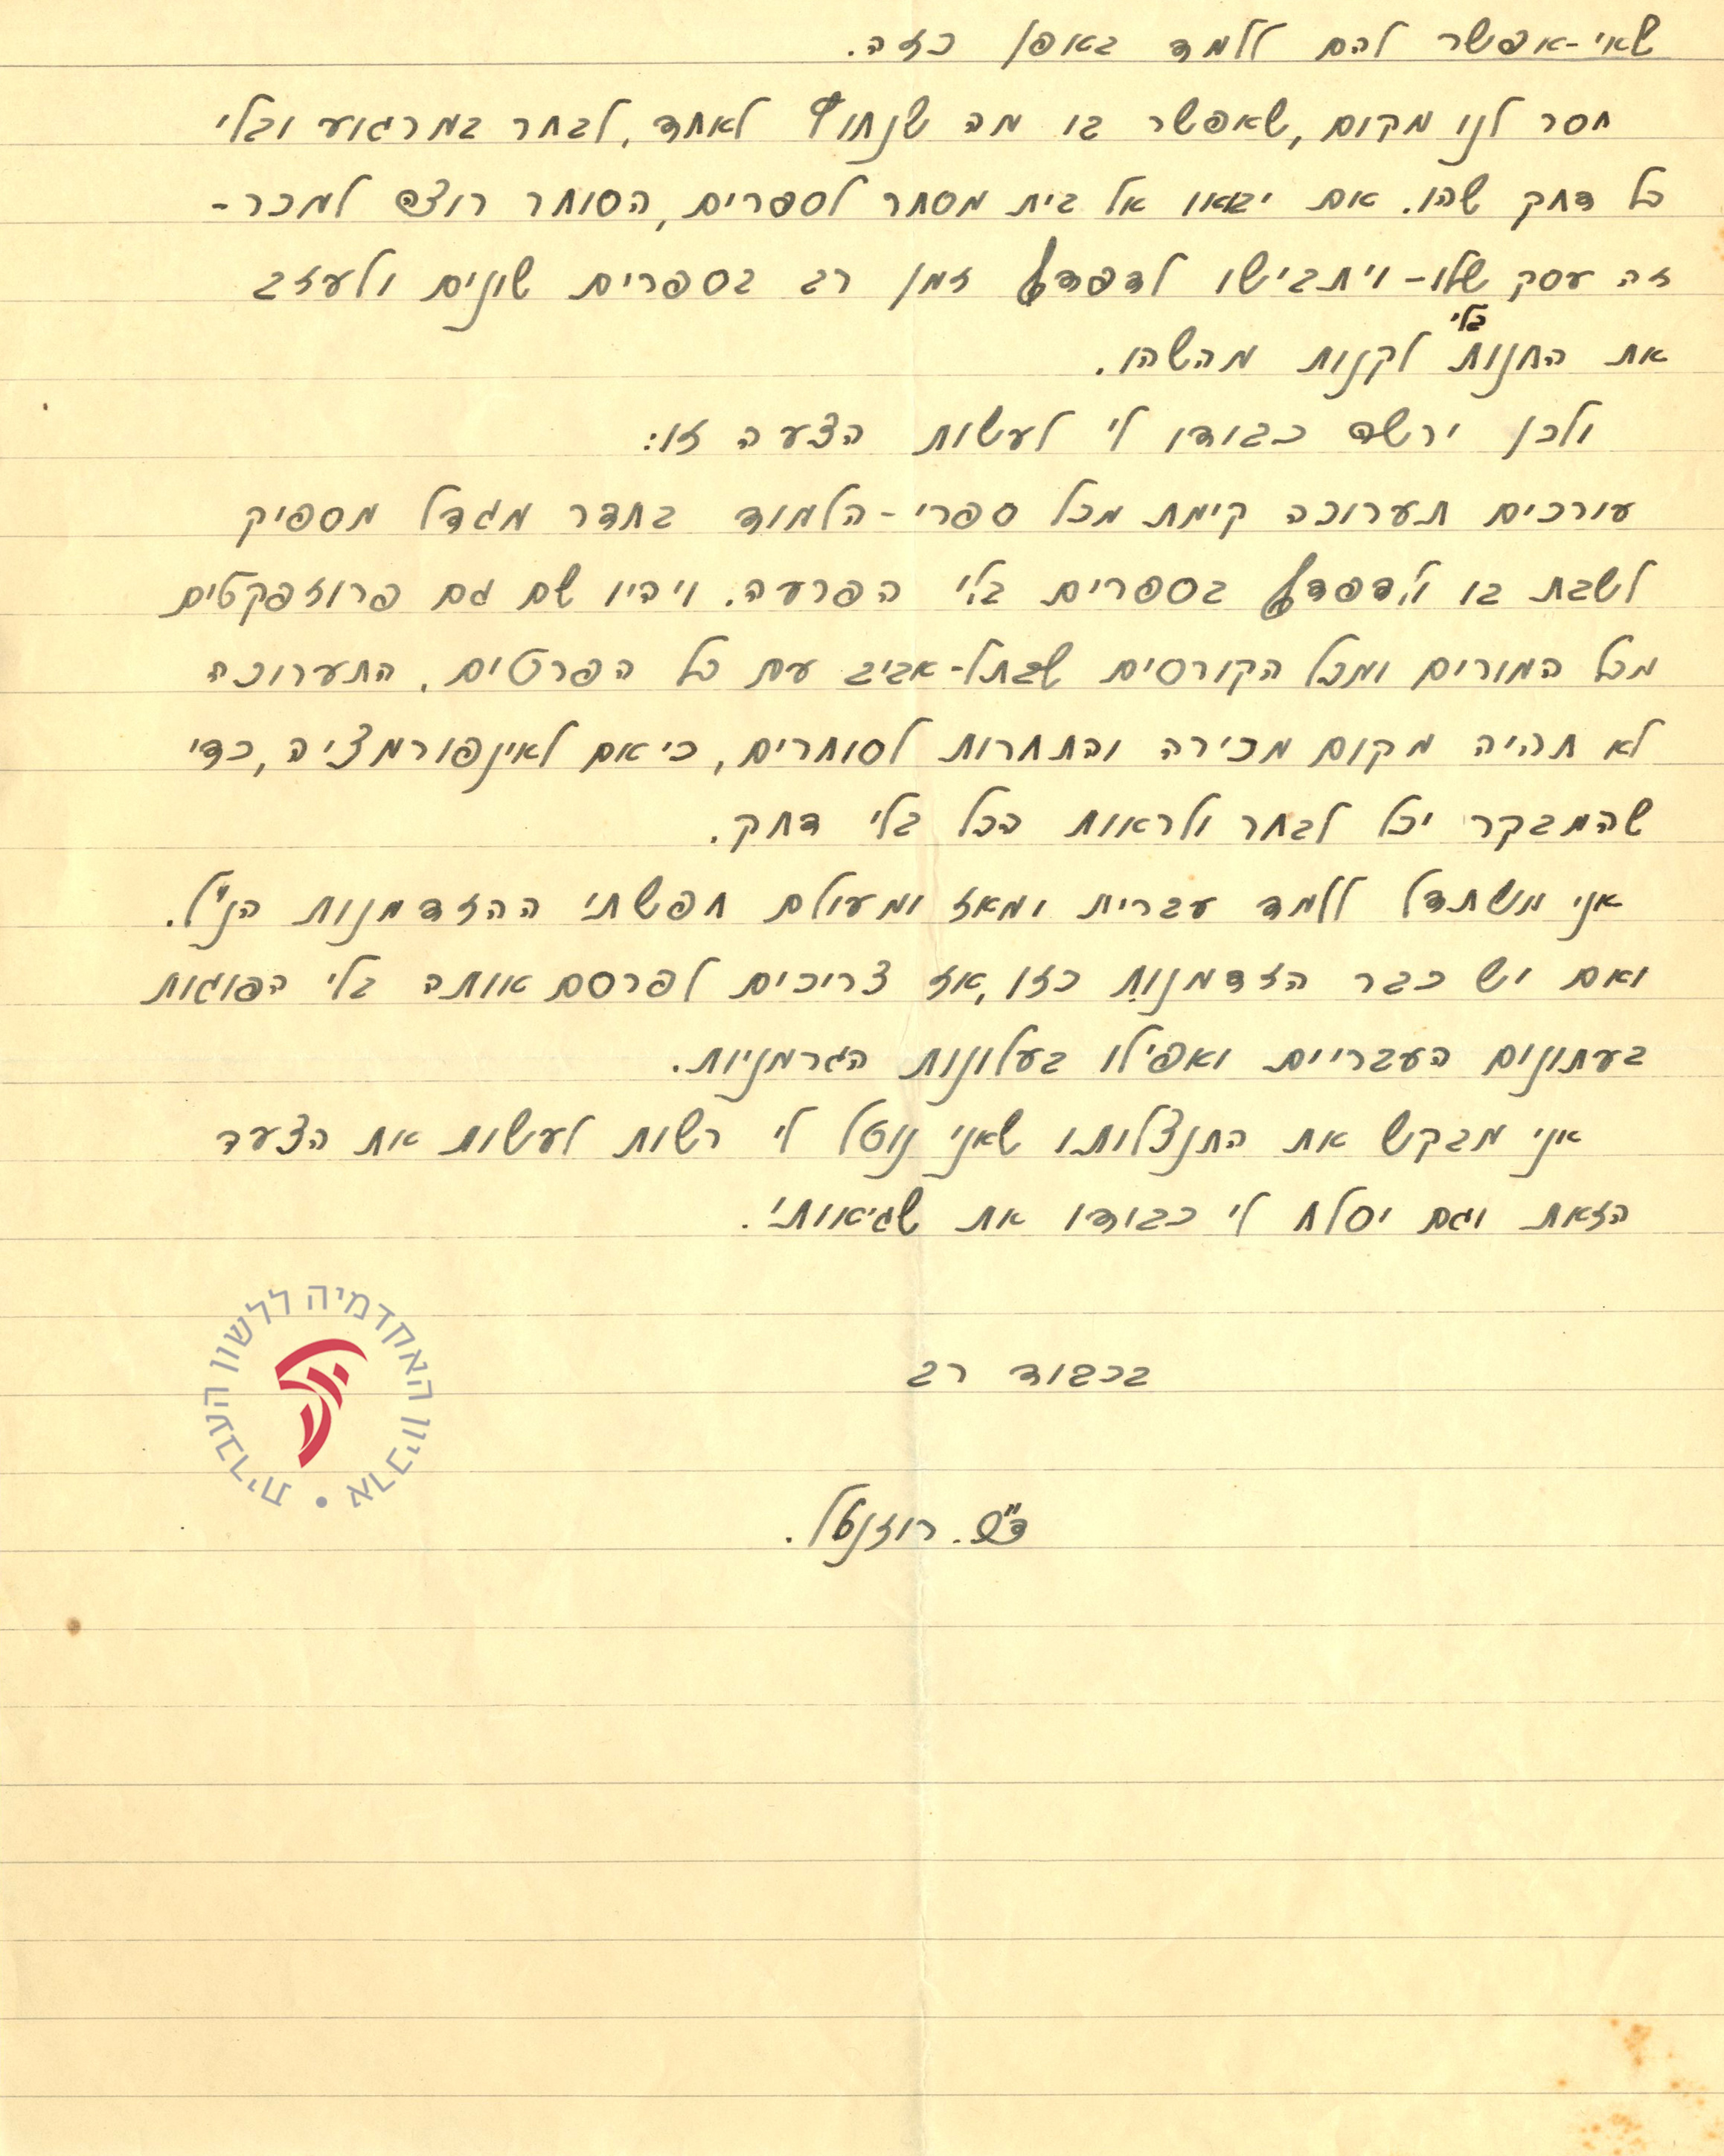 שאי-אפשר להם ללמד באופן כזה.
חסר לנו מקום, שאפשר בו מה שנחוץ לאחד, לבחר במרגוע ובלי
כל דחק שהו. אם יבאו אל בית מסחר לספרים, הסוחר רוצה למכר -
זה עסק שלו - ויתבישו לדפדף זמן רב בספרים שונים ולעזב
בלי
את החנות לקנות מהשהו.
ולכן ירשה כבודו לי לעשות הצעה זו:
עורכים תערוכה קימת מכל ספרי-הלמוד בחדר מגדל מספיק
לשבת בו ולדפדף בספרים בלי הפרעה. ויהיו שם גם פרוזפקטים
מכל המורים ומכל הקורסים שבתל-אביב עם כל הפרטים. התערוכה
לא תהיה מקום מכירה והתחרות לסוחרים, כי אם לאינפורמציה, כדי
שהמבקר יכל לבחר ולראות הכל בלי דחק.
אני משתדל ללמד עברית ומאז ומעולם חפשתי ההזדמנות הנ"ל.
ואם יש כבר הזדמנות כזו, אז צריכים לפרסם אותה בלי הפוגות
בעתונים העבריים ואפילו בעלונות הגרמניות.
אני מבקש את התנצלותו שאני נוטל לי רשות לעשות את הצעד
הזאת וגם יסלח לי כבודו את שגיאותי.
בכבוד רב
רוזנטל.
האקדמיה ללשון העברית • ארכיון